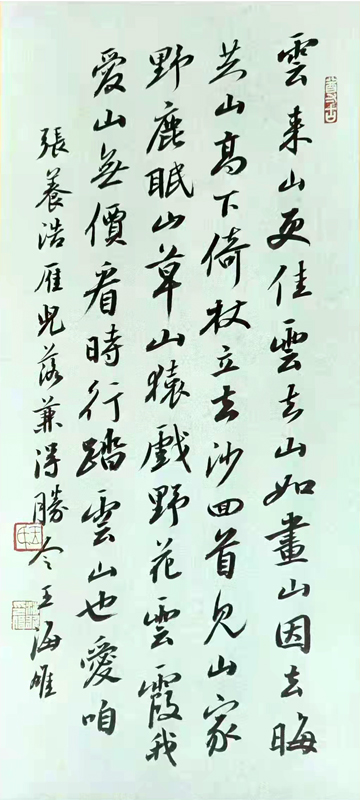 雲来山更佳雲去山如畫山因云晦
共山高下倚杖立云沙回首見山家
野鹿眠山草山猿戲野花雲霞我
愛山無價看時行踏雲山也愛咱
張養浩雁兒落兼得勝令王海雄